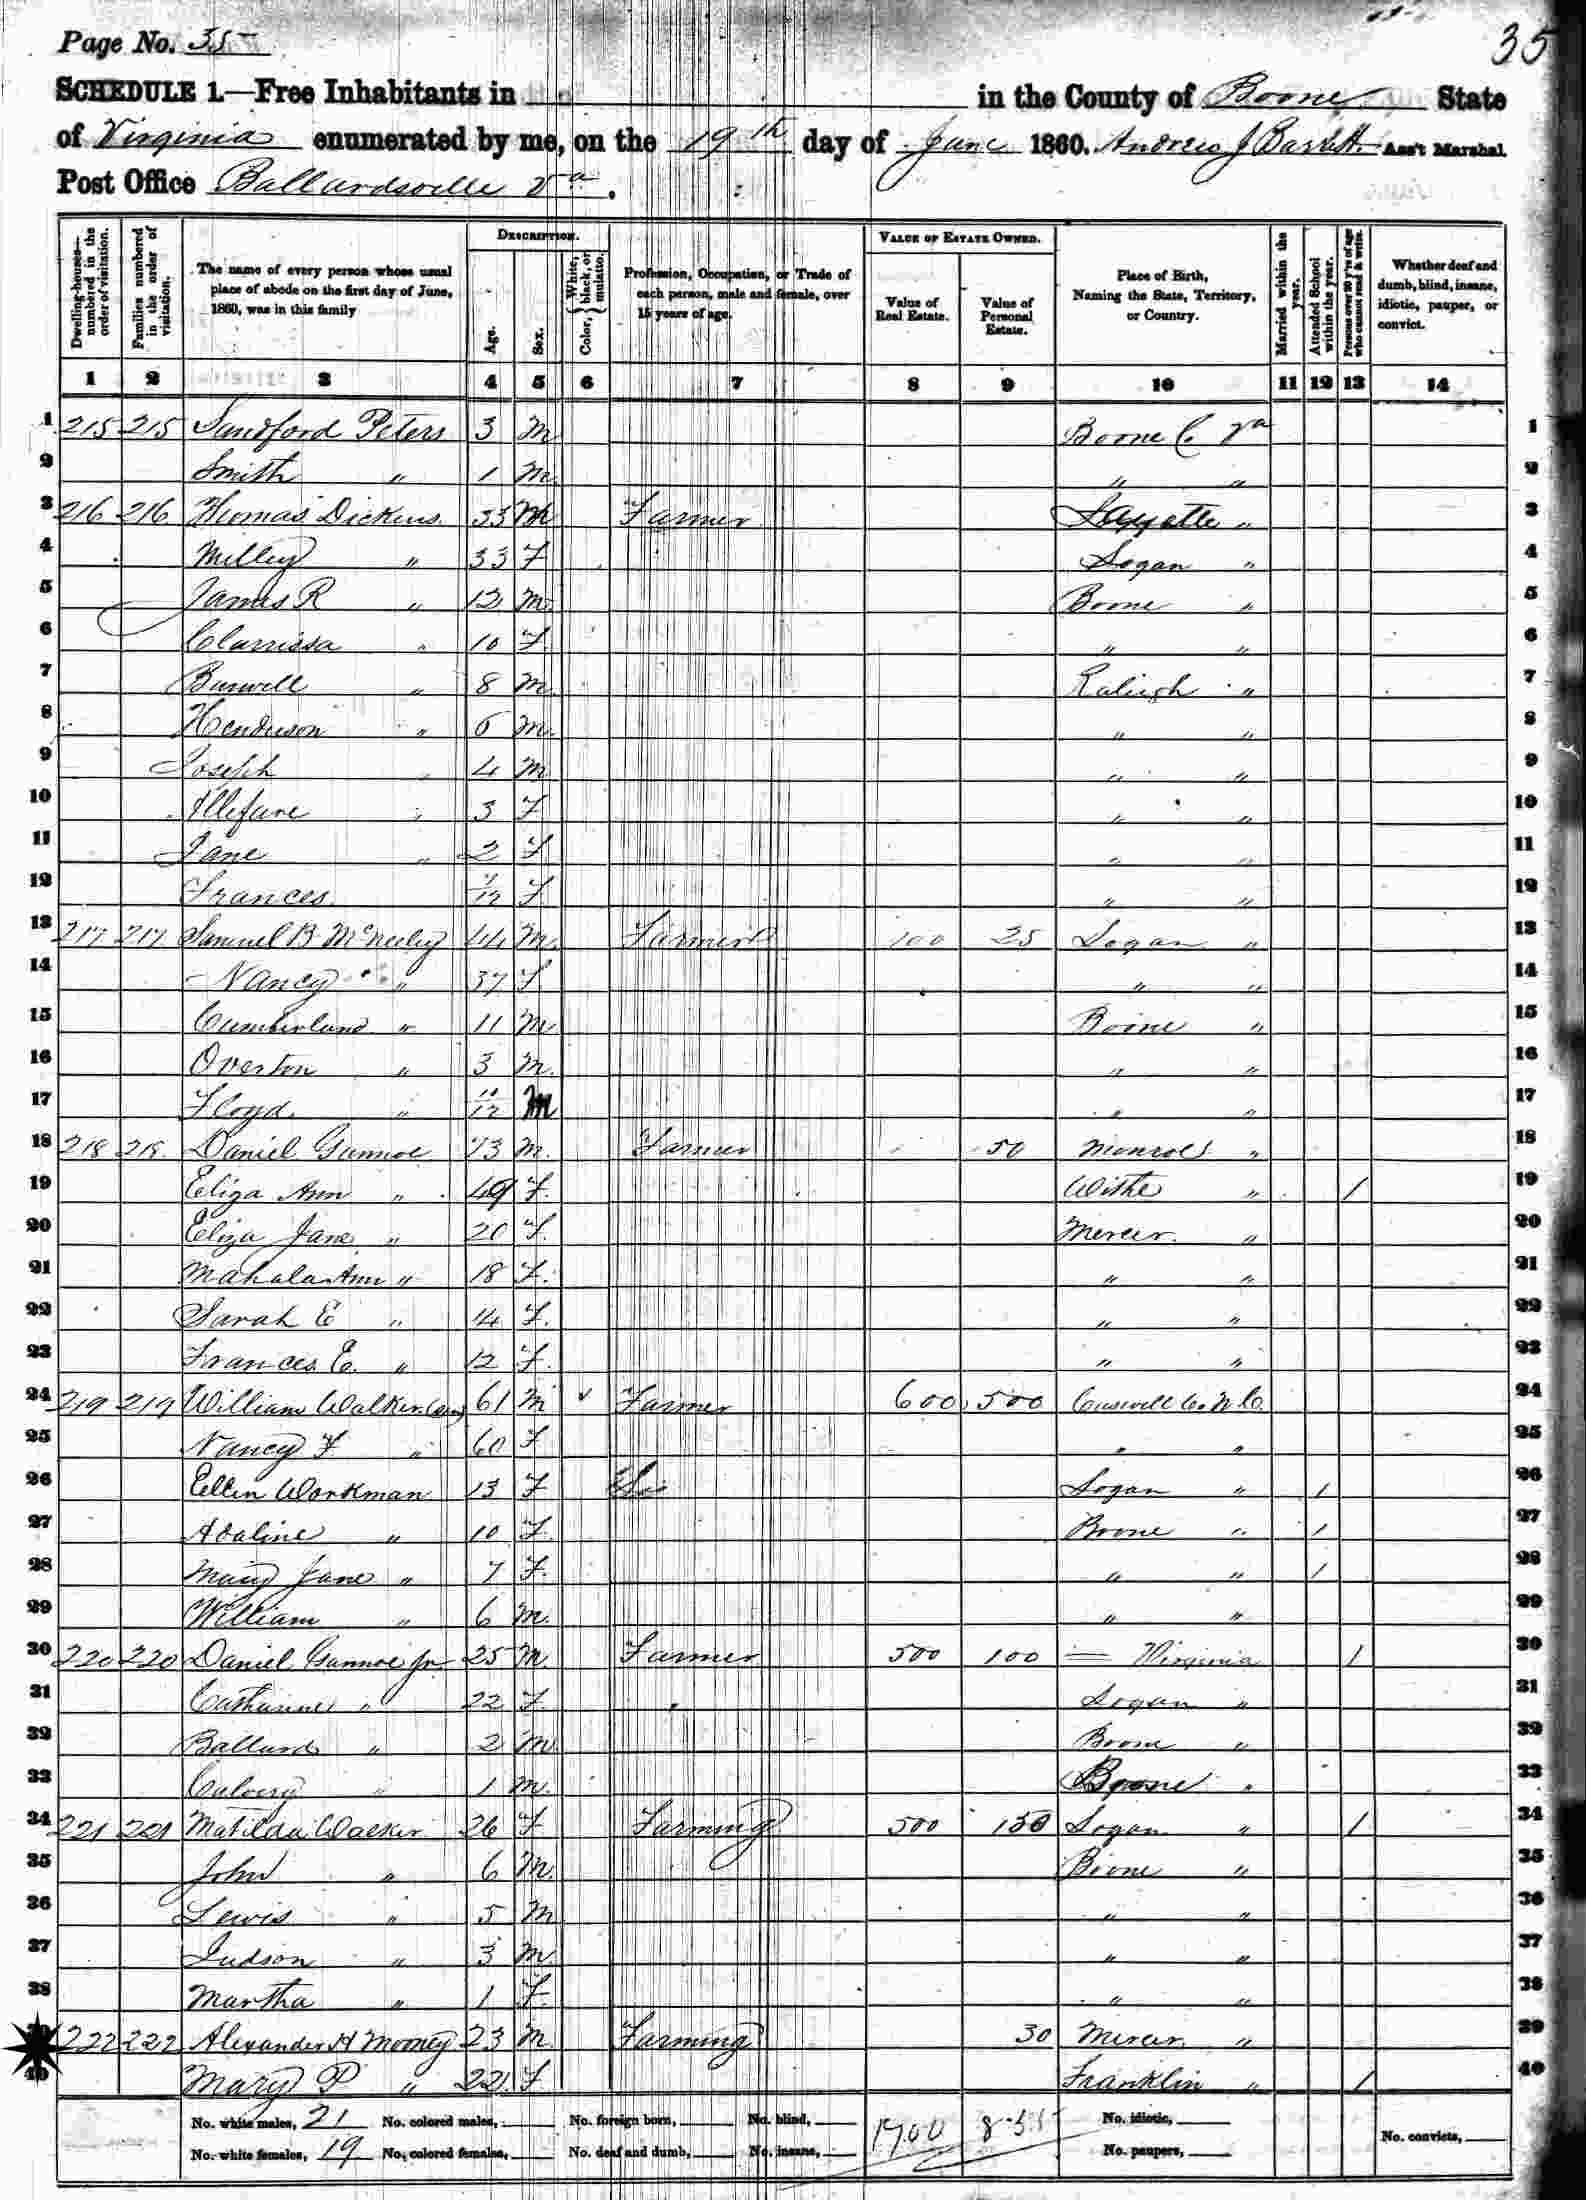 35
Page No. 35
SCHEDULE 1.—Free Inhabitants in in the County of Boone State
of Virginia enumerated by me, on the 19th day of June 1860. Andrew J Barrett Ass't Marshal.
Post Office Ballardsville Va.
Dwelling-houses—numbered in the order of visitation.
Families numbered in the order of visitation.
The name of every person whose usual place of abode on the first day of June, 1860, was in this family
DESCRIPTION.
Age.
Sex.
Color, { White, black, or mulatto.
Profession, Occupation, or Trade of each person, male and female, over 15 years of age.
VALUE OF ESTATE OWNED.
Value of Real Estate.
Value of Personal Estate.
Place of Birth, Naming the State, Territory, or Country.
Married within the year.
Attended School within the year.
Persons over 20 y'rs of age who cannot read & write.
Whether deaf and dumb, blind, insane, idiotic, pauper, or convict.
1 2 3 4 5 6 7 8 9 10 11 12 13 14
1 215 215 Sandford Peters 3 M Boone C Va 1
2 Smith " 1 M " " 2
3 216 216 Thomas Dickens 33 M Farmer Fayette " 3
4 Milley " 33 F Logan " 4
5 James R " 12 M Boone " 5
6 Clarrissa " 10 F " " 6
7 Burwell " 8 M Raleigh " 7
8 Henderson " 6 M " " 8
9 Joseph " 4 M " " 9
10 " 3 F " " 10
11 Jane " 2 F " " 11
12 Frances /12 F " " 12
13 217 217 Samuel B McNeeley 44 M Farmer 100 25 Logan " 13
14 Nancy " 37 F " " 14
15 Cumberland " 11 M Boone " 15
16 Overton " 3 M " " 16
17 Floyd " 10/12 M " " 17
18 218 218 Daniel Gunnoe 73 M Farmer 50 Monroe " 18
19 Eliza Ann " 49 F Withe " / 19
20 Eliza Jane " 20 F Mercer " 20
21 Mahala Ann " 18 F " " 21
22 Sarah E " 14 F " " 22
23 Frances E. " 12 F " " 23
24 219 219 William Walker (Sen) 61 M Farmer 600 500 Caswell Co N C. 24
25 Nancy F " 60 F " " 25
26 Ellen Workman 13 F Logan " / 26
27 Adaline " 10 F Boone " / 27
28 Mary Jane " 7 F " " / 28
29 William " 6 M " " 29
30 220 220 Daniel Gunnoe Jr 25 M Farmer 500 100 — Virginia / 30
31 Catharine " 22 F Logan " 31
32 Ballard " 2 M Boone " 32
33 Calvery " 1 M Boone " 33
34 221 221 Matilda Walker 26 F Farming 500 150 Logan " / 34
35 John " 6 M Boone " 35
36 Lewis " 5 M " " 36
37 Judson " 3 M " " 37
38 Martha " 1 F " " 38
39 222 222 Alexander H Mooney 23 M Farming 30 Mercer " 39
40 Mary P " 22 F Franklin " / 40
No. white males, 21 No. colored males, No. foreign born, No. blind, 1700 855 No. idiotic,
No. white females, 19 No. colored females, No. deaf and dumb, No. insane, No. paupers, No. convicts,